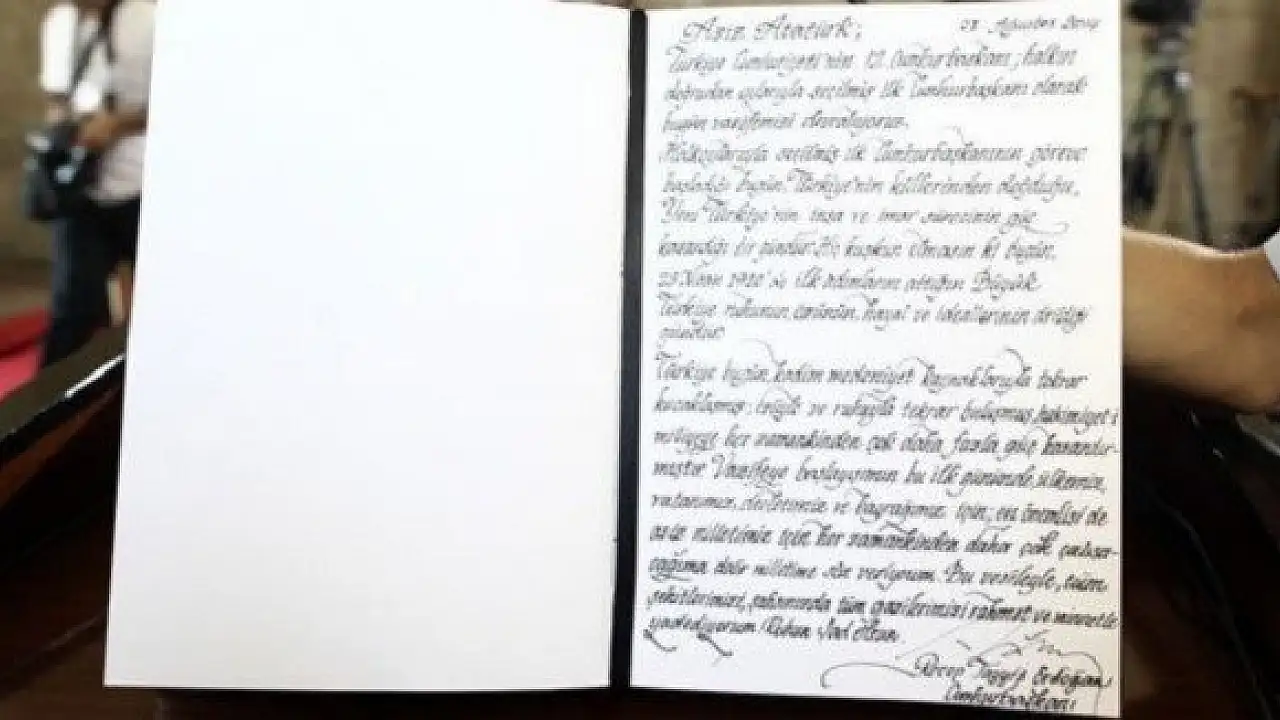 Aziz Atatürk; 28 Ağustos 2014
Türkiye Cumhuriyeti'nin 12. Cumhurbaşkanı; halkın
doğrudan oylarıyla seçilmiş ilk Cumhurbaşkanı olarak
bugün vazifemizi devralıyoruz.
Halkoylarıyla seçilmiş ilk Cumhurbaşkanının göreve
başladığı bugün, Türkiye'nin küllerinden doğduğu,
Yeni Türkiye'nin inşa ve imar sürecinin güç
kazandığı bir gündür. Hiç kuşkun olmasın ki bugün,
23 Nisan 1920'de ilk adımlarını attığın Büyük
Türkiye ruhunun, özünün, hayal ve ideallerinin dirildiği
gündür.
Türkiye bugün, kadim medeniyet kaynaklarıyla tekrar
kucaklaşmış; ve ruhuyla tekrar buluşmuş, hakimiyet-i
milliye her zamankinden çok daha fazla güç kazandır-
mıştır. Vazifeye başlayışımın bu ilk gününde, ülkemiz,
vatanımız, devletimiz ve bayrağımız için; en önemlisi de
aziz milletimiz için her zamankinden daha çok çalışa-
cağıma dair milletime söz veriyorum. Bu vesileyle, tüm
şehitlerimizi, şahsınızda tüm gazilerimizi rahmet ve minnetle
yadediyorum. Ruhun Şad Olsun.
Recep Tayyip Erdoğan
Cumhurbaşkanı